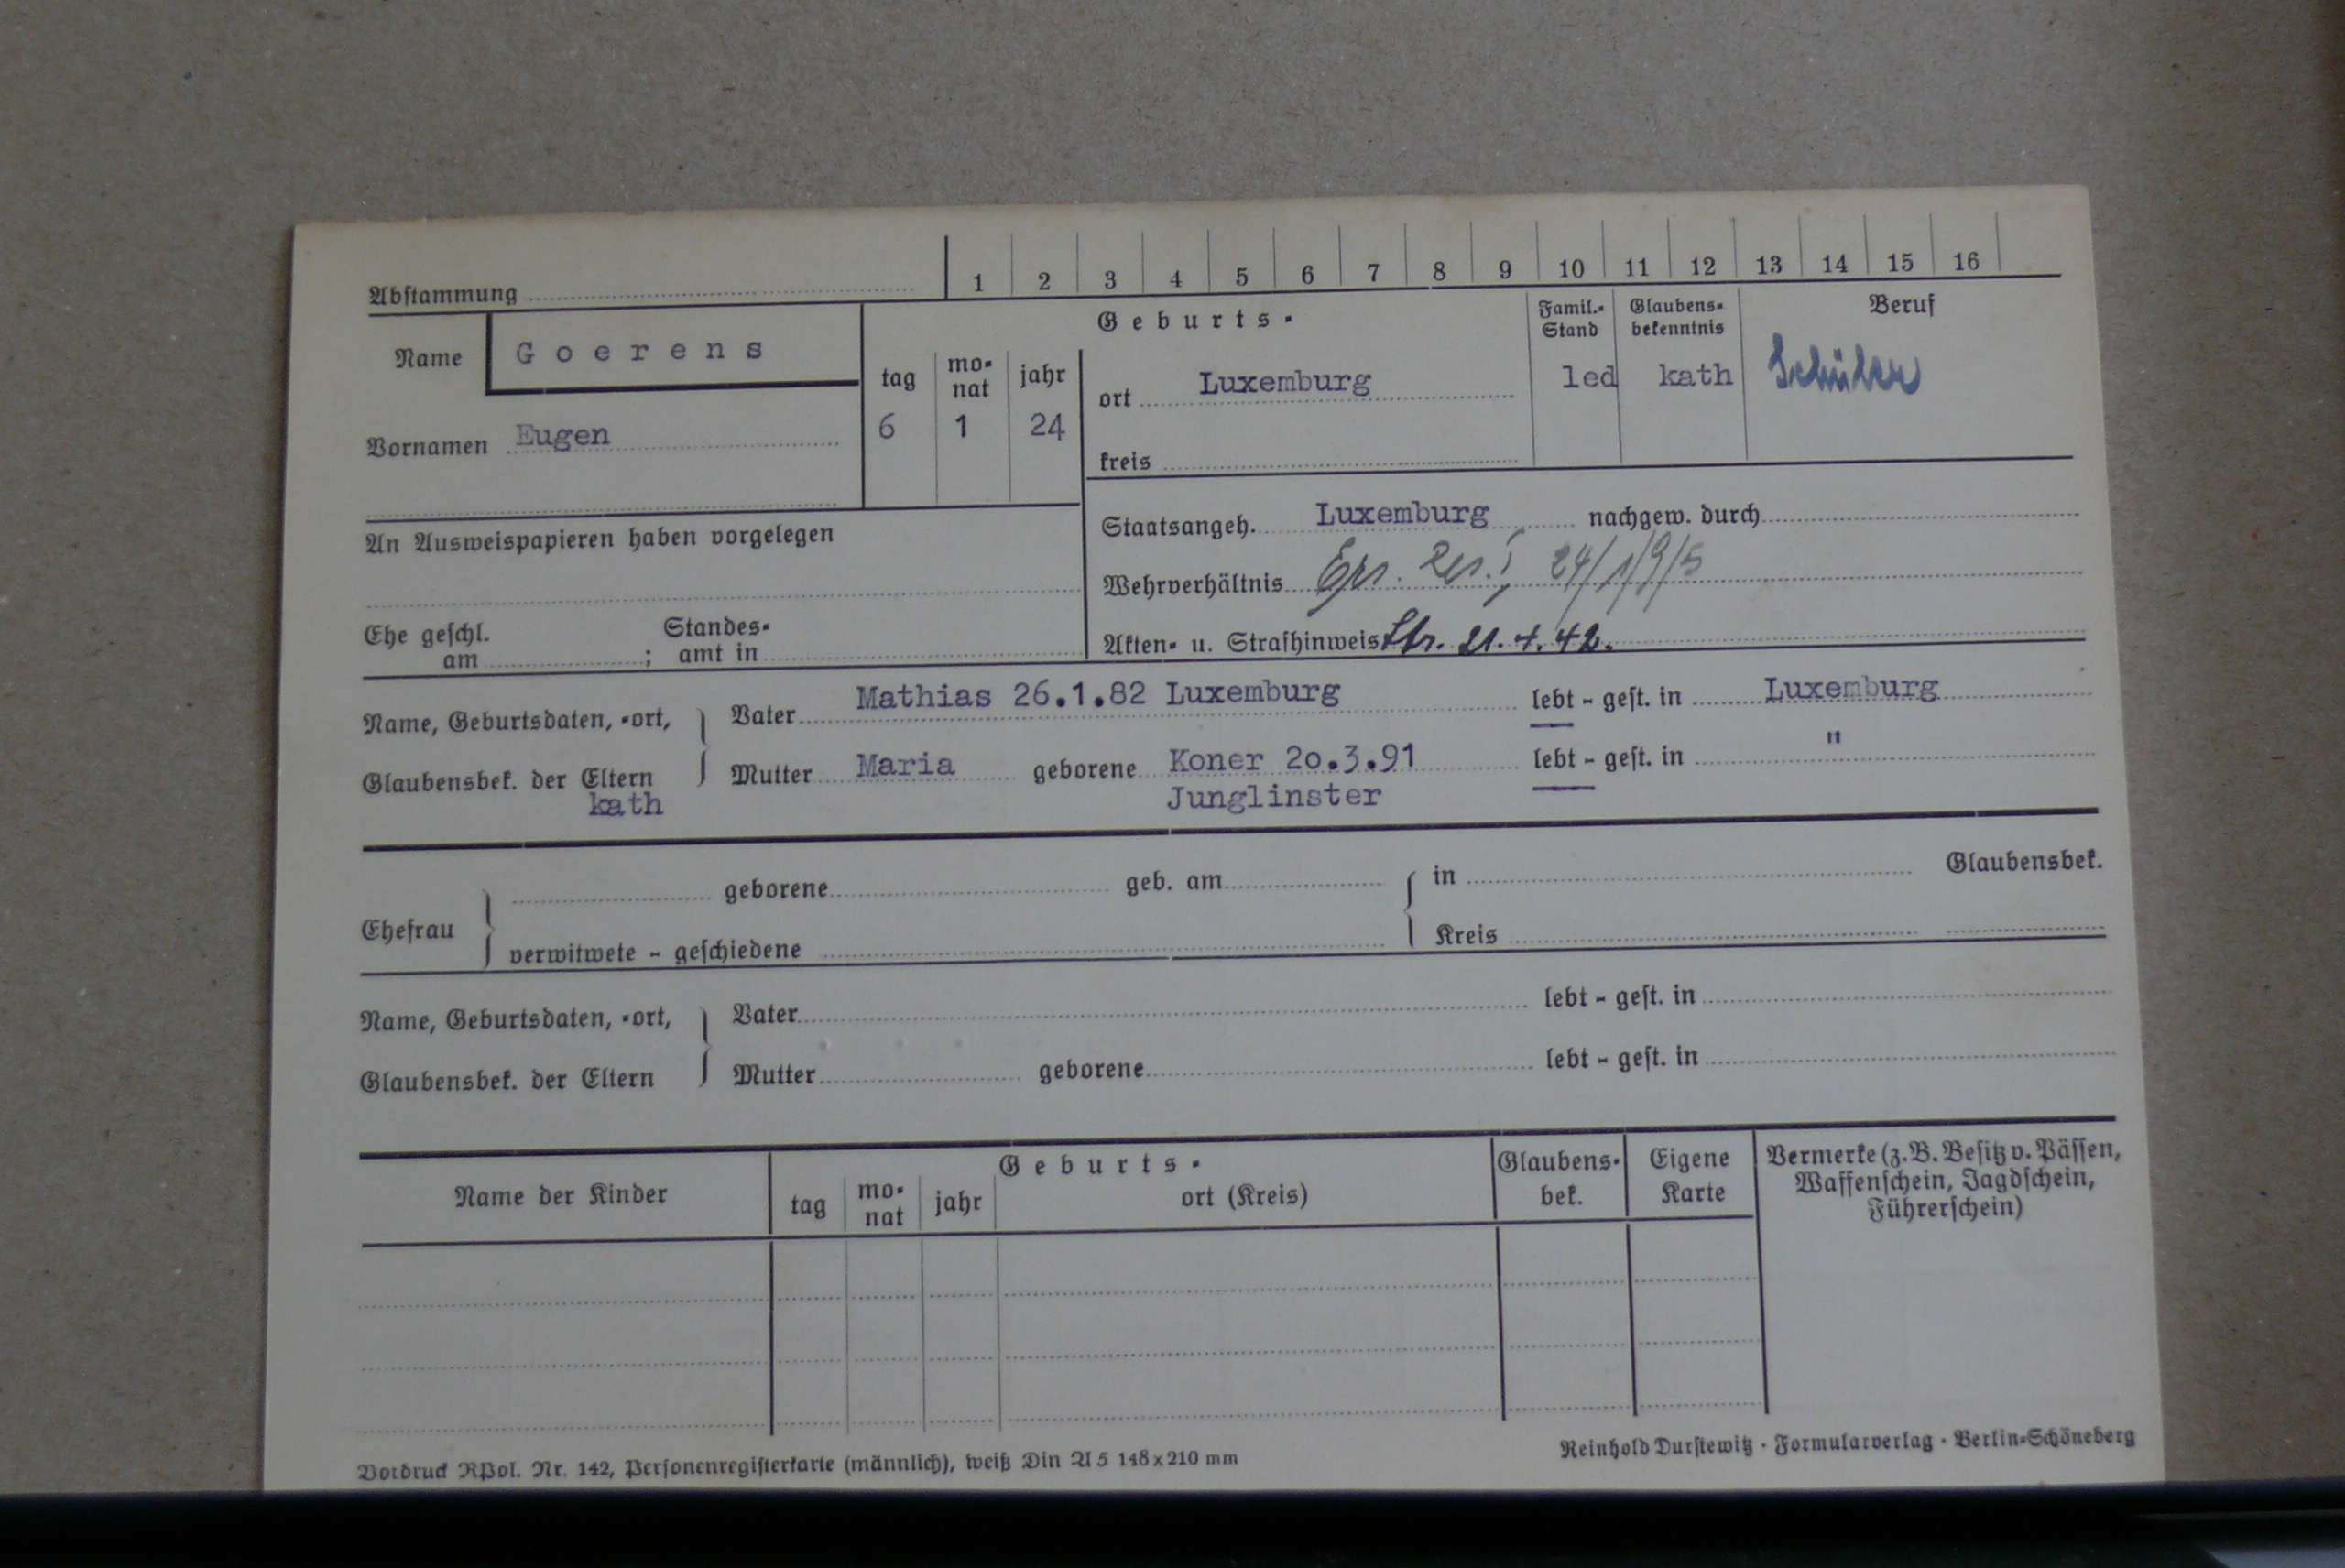 Abstammung 1 2 3 4 5 6 7 8 9 10 11 12 13 14 15 16
Name Goerens
Vornamen Eugen
Geburts-
tag monat jahr
6 1 24
ort Luxemburg
kreis
Famil.-Stand
led
Glaubens-bekenntnis
kath
Beruf
Schüler
An Ausweispapieren haben vorgelegen
Staatsangeh. Luxemburg nachgew. durch
Wehrverhältnis Ers. Res. I, 24/1/9/5
Ehe geschl. am ; Standes-amt in
Akten- u. Strafhinweis Str. 21.4.42.
Name, Geburtsdaten, -ort,
Glaubensbek. der Eltern
kath
Vater Mathias 26.1.82 Luxemburg lebt - gest. in Luxemburg
Mutter Maria geborene Koner 2o.3.91 lebt - gest. in "
Junglinster
Ehefrau
geborene geb. am in Glaubensbek.
verwitwete - geschiedene Kreis
Name, Geburtsdaten, -ort,
Glaubensbek. der Eltern
Vater lebt - gest. in
Mutter geborene lebt - gest. in
Name der Kinder
Geburts-
tag monat jahr ort (Kreis)
Glaubens-bek.
Eigene Karte
Vermerke (z. B. Besitz v. Pässen,
Waffenschein, Jagdschein,
Führerschein)
Vordruck RPol. Nr. 142, Personenregisterkarte (männlich), weiß Din A 5 148 x 210 mm
Reinhold Durstewitz · Formularverlag · Berlin-Schöneberg